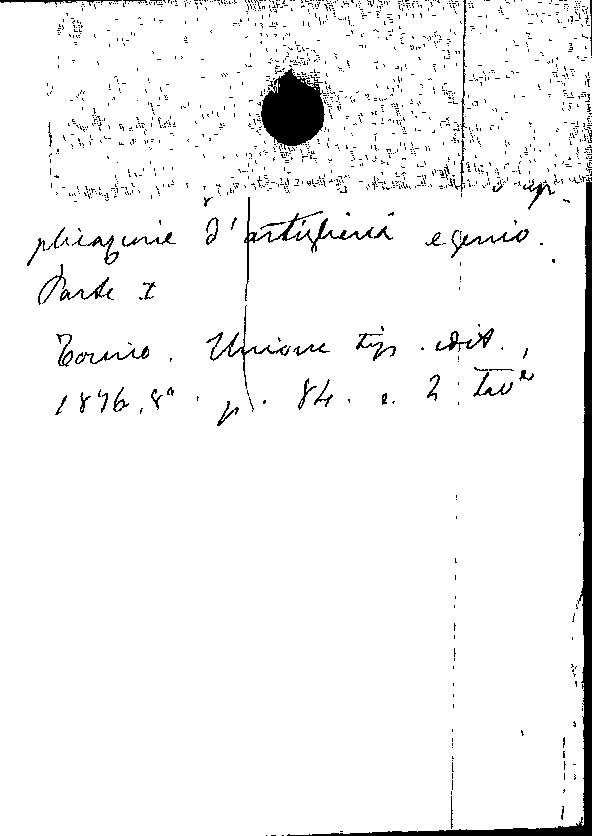 ap-
plicazione d'artiglieria e genio.
Parte I
Torino. Unione tip. edit.,
1876, 8° . p. 84. e. 2 tav^e